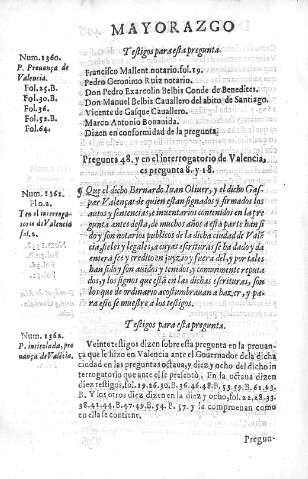 MAYORAZGO
Testigos para esta pregunta.
Num.1360.
P. Prouança de
Valencia.
Fol.25.B.
Fol.30.B.
Fol.36.
Fol.52.B.
Fol.64.
Francisco Mallent notario.fol.19.
Pedro Geronimo Ruiz notario.
Don Pedro Exarcolin Belbis Conde de Benedites.
Don Manuel Belbis Cauallero del abito de Santiago.
Vicente de Gasque Cauallero.
Marco Antonio Bonanida.
Dizen en conformidad de la pregunta.
Pregunta 48. y en el interrogatorio de Valencia,
es pregunta 8. y 18.
Num.1361.
Fl 0.2.
Y en el interroga-
torio de Valencia
fol.2.
Que el dicho Bernardo Iuan Oliuer, y el dicho Gas
par Valença, de quien estan signados y firmados los
autos y sentencias, e inuentarios contenidos en la pre
gunta antes desta, de muchos años a esta parte han si
do y son notarios publicos de la dicha ciudad de Valẽ
cia, fieles y legales, a cuyas escrituras se ha dado y da
entera fee y credito en juyzio y fuera del, y por tales
han sido y son auidos y tenidos, y comunmente reputa
dos, y los signos que està en dichas escrituras, son
los que de ordinario acostumbrauan a hazer, y pa-
ra esto se muestre a los testigos.
Testigos para esta pregunta.
Num.1362.
P. intitulada, pro
uança de Valẽcia.
Veinte testigos dizen sobre esta pregunta en la prouan-
ça que se hizo en Valencia ante el Gouernador de la dicha
ciudad en las preguntas octaua, y diez y ocho del dicho in
terrogatorio que ante el se presentò. En la octaua dizen
diez testigos, fol.19.26.30.B.36.46.48.B.53.59.B.61.63.
B. Y los otros diez dizen en la diez y ocho, fol.22.28.33.
38.41.44.B.47.49.B.54.P.57. y la comprueuan como en
ella se contiene.
Pregun-